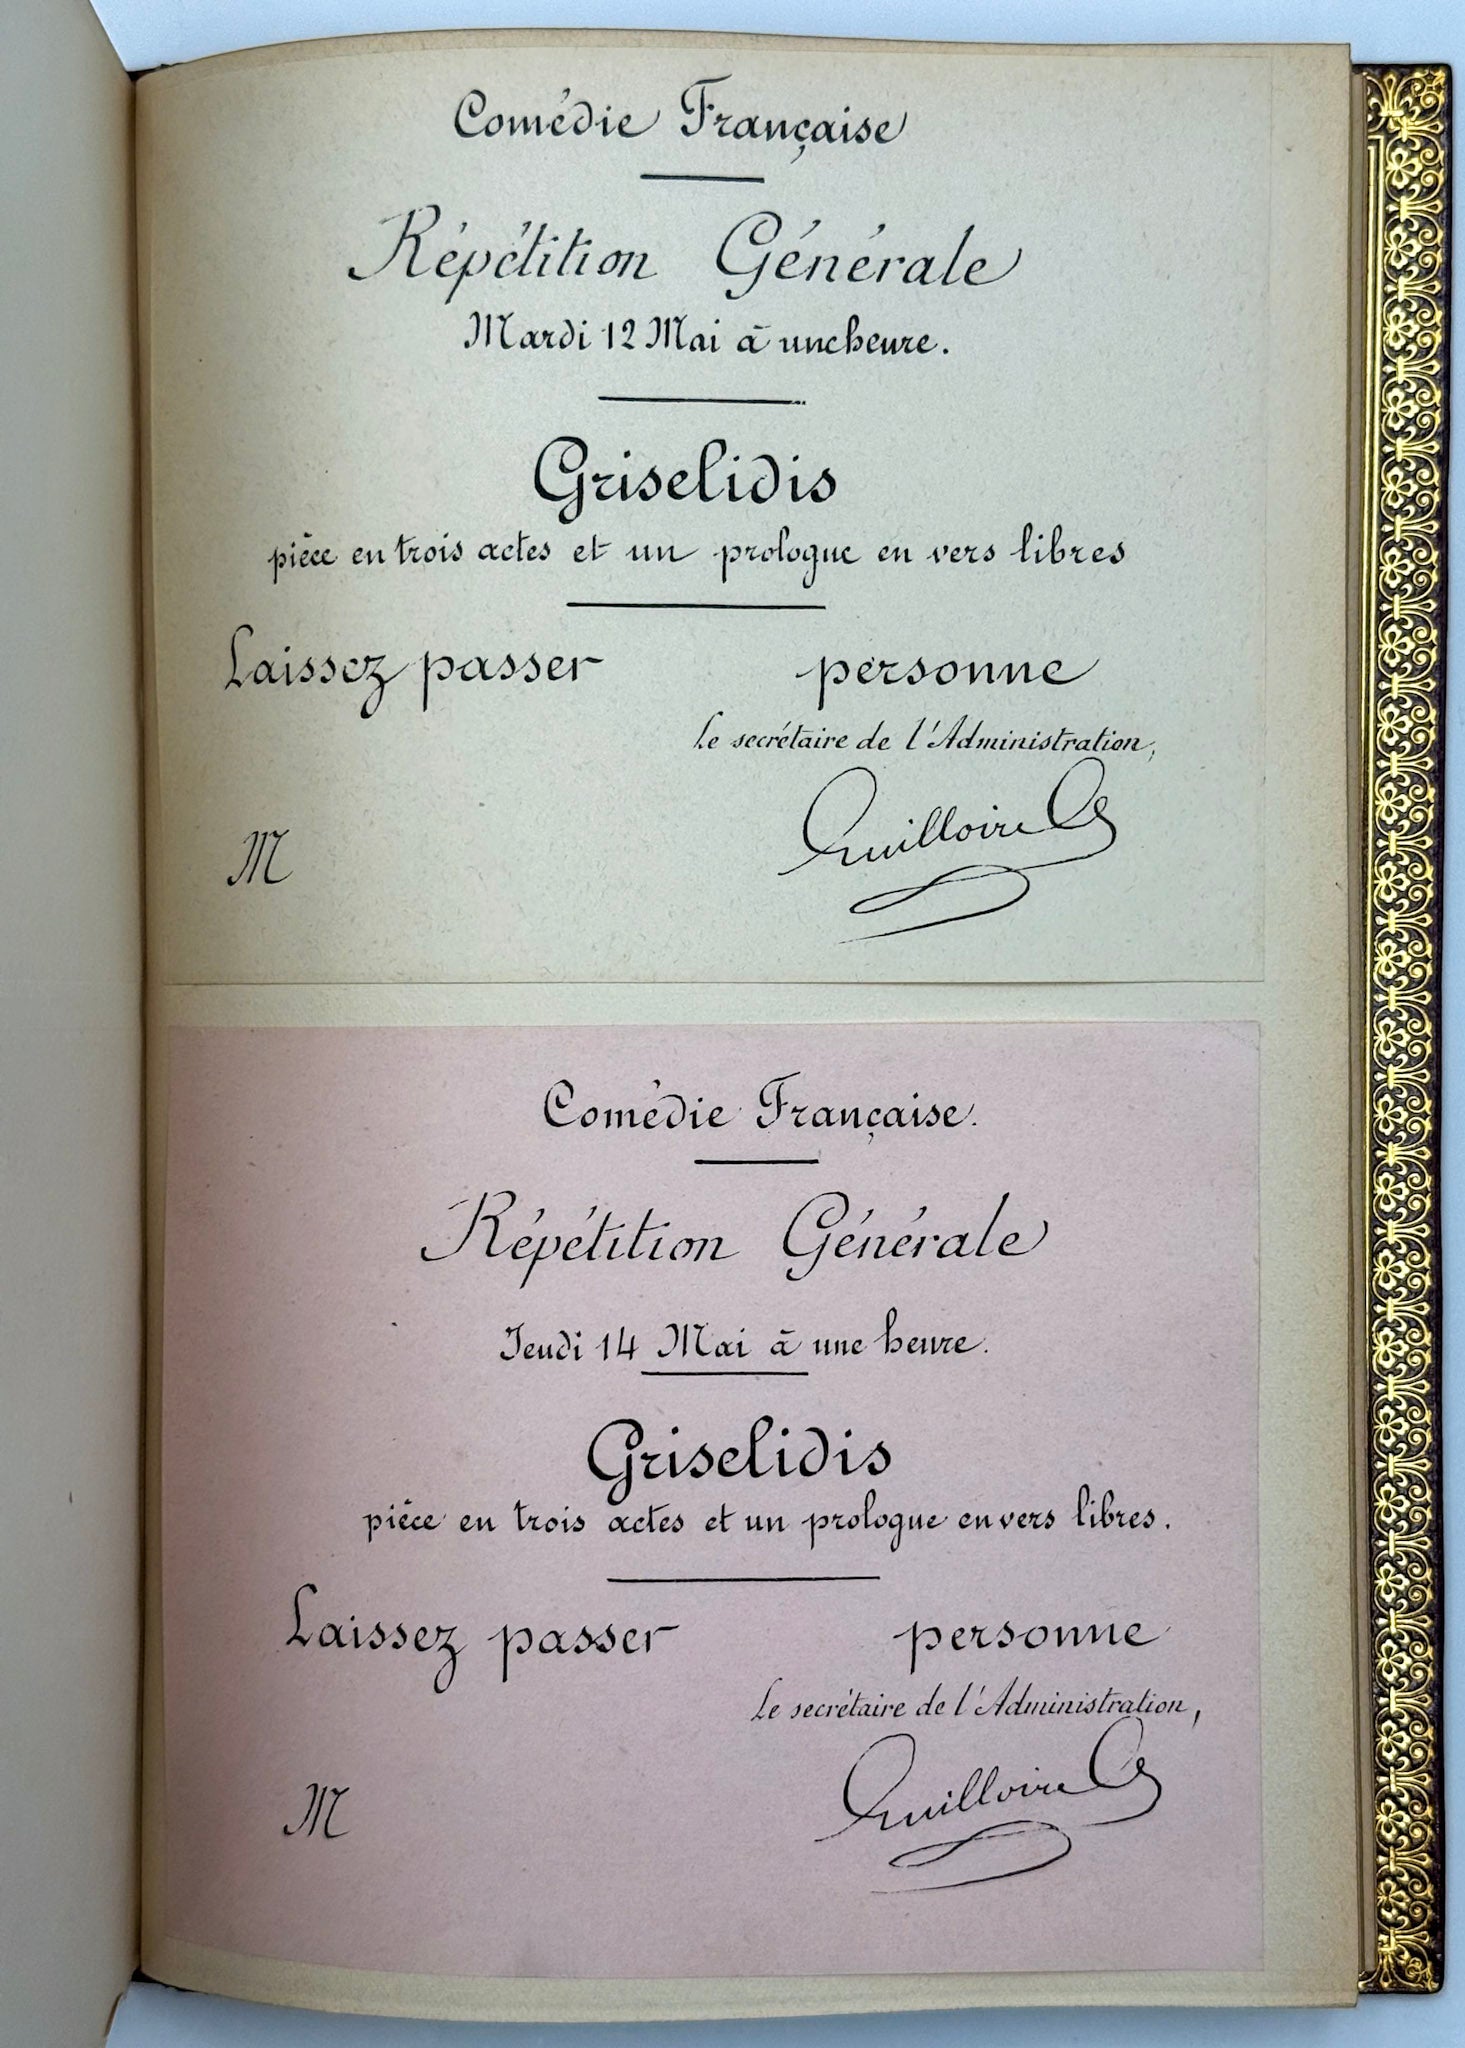 Comédie Française
Répétition Générale
Mardi 12 Mai à une heure.
Griselidis
pièce en trois actes et un prologue en vers libres
Laissez passer personne
Le secrétaire de l'Administration,
Guilloire
M
Comédie Française.
Répétition Générale
Jeudi 14 Mai à une heure.
Griselidis
pièce en trois actes et un prologue en vers libres.
Laissez passer personne
Le secrétaire de l'Administration,
Guilloire
M